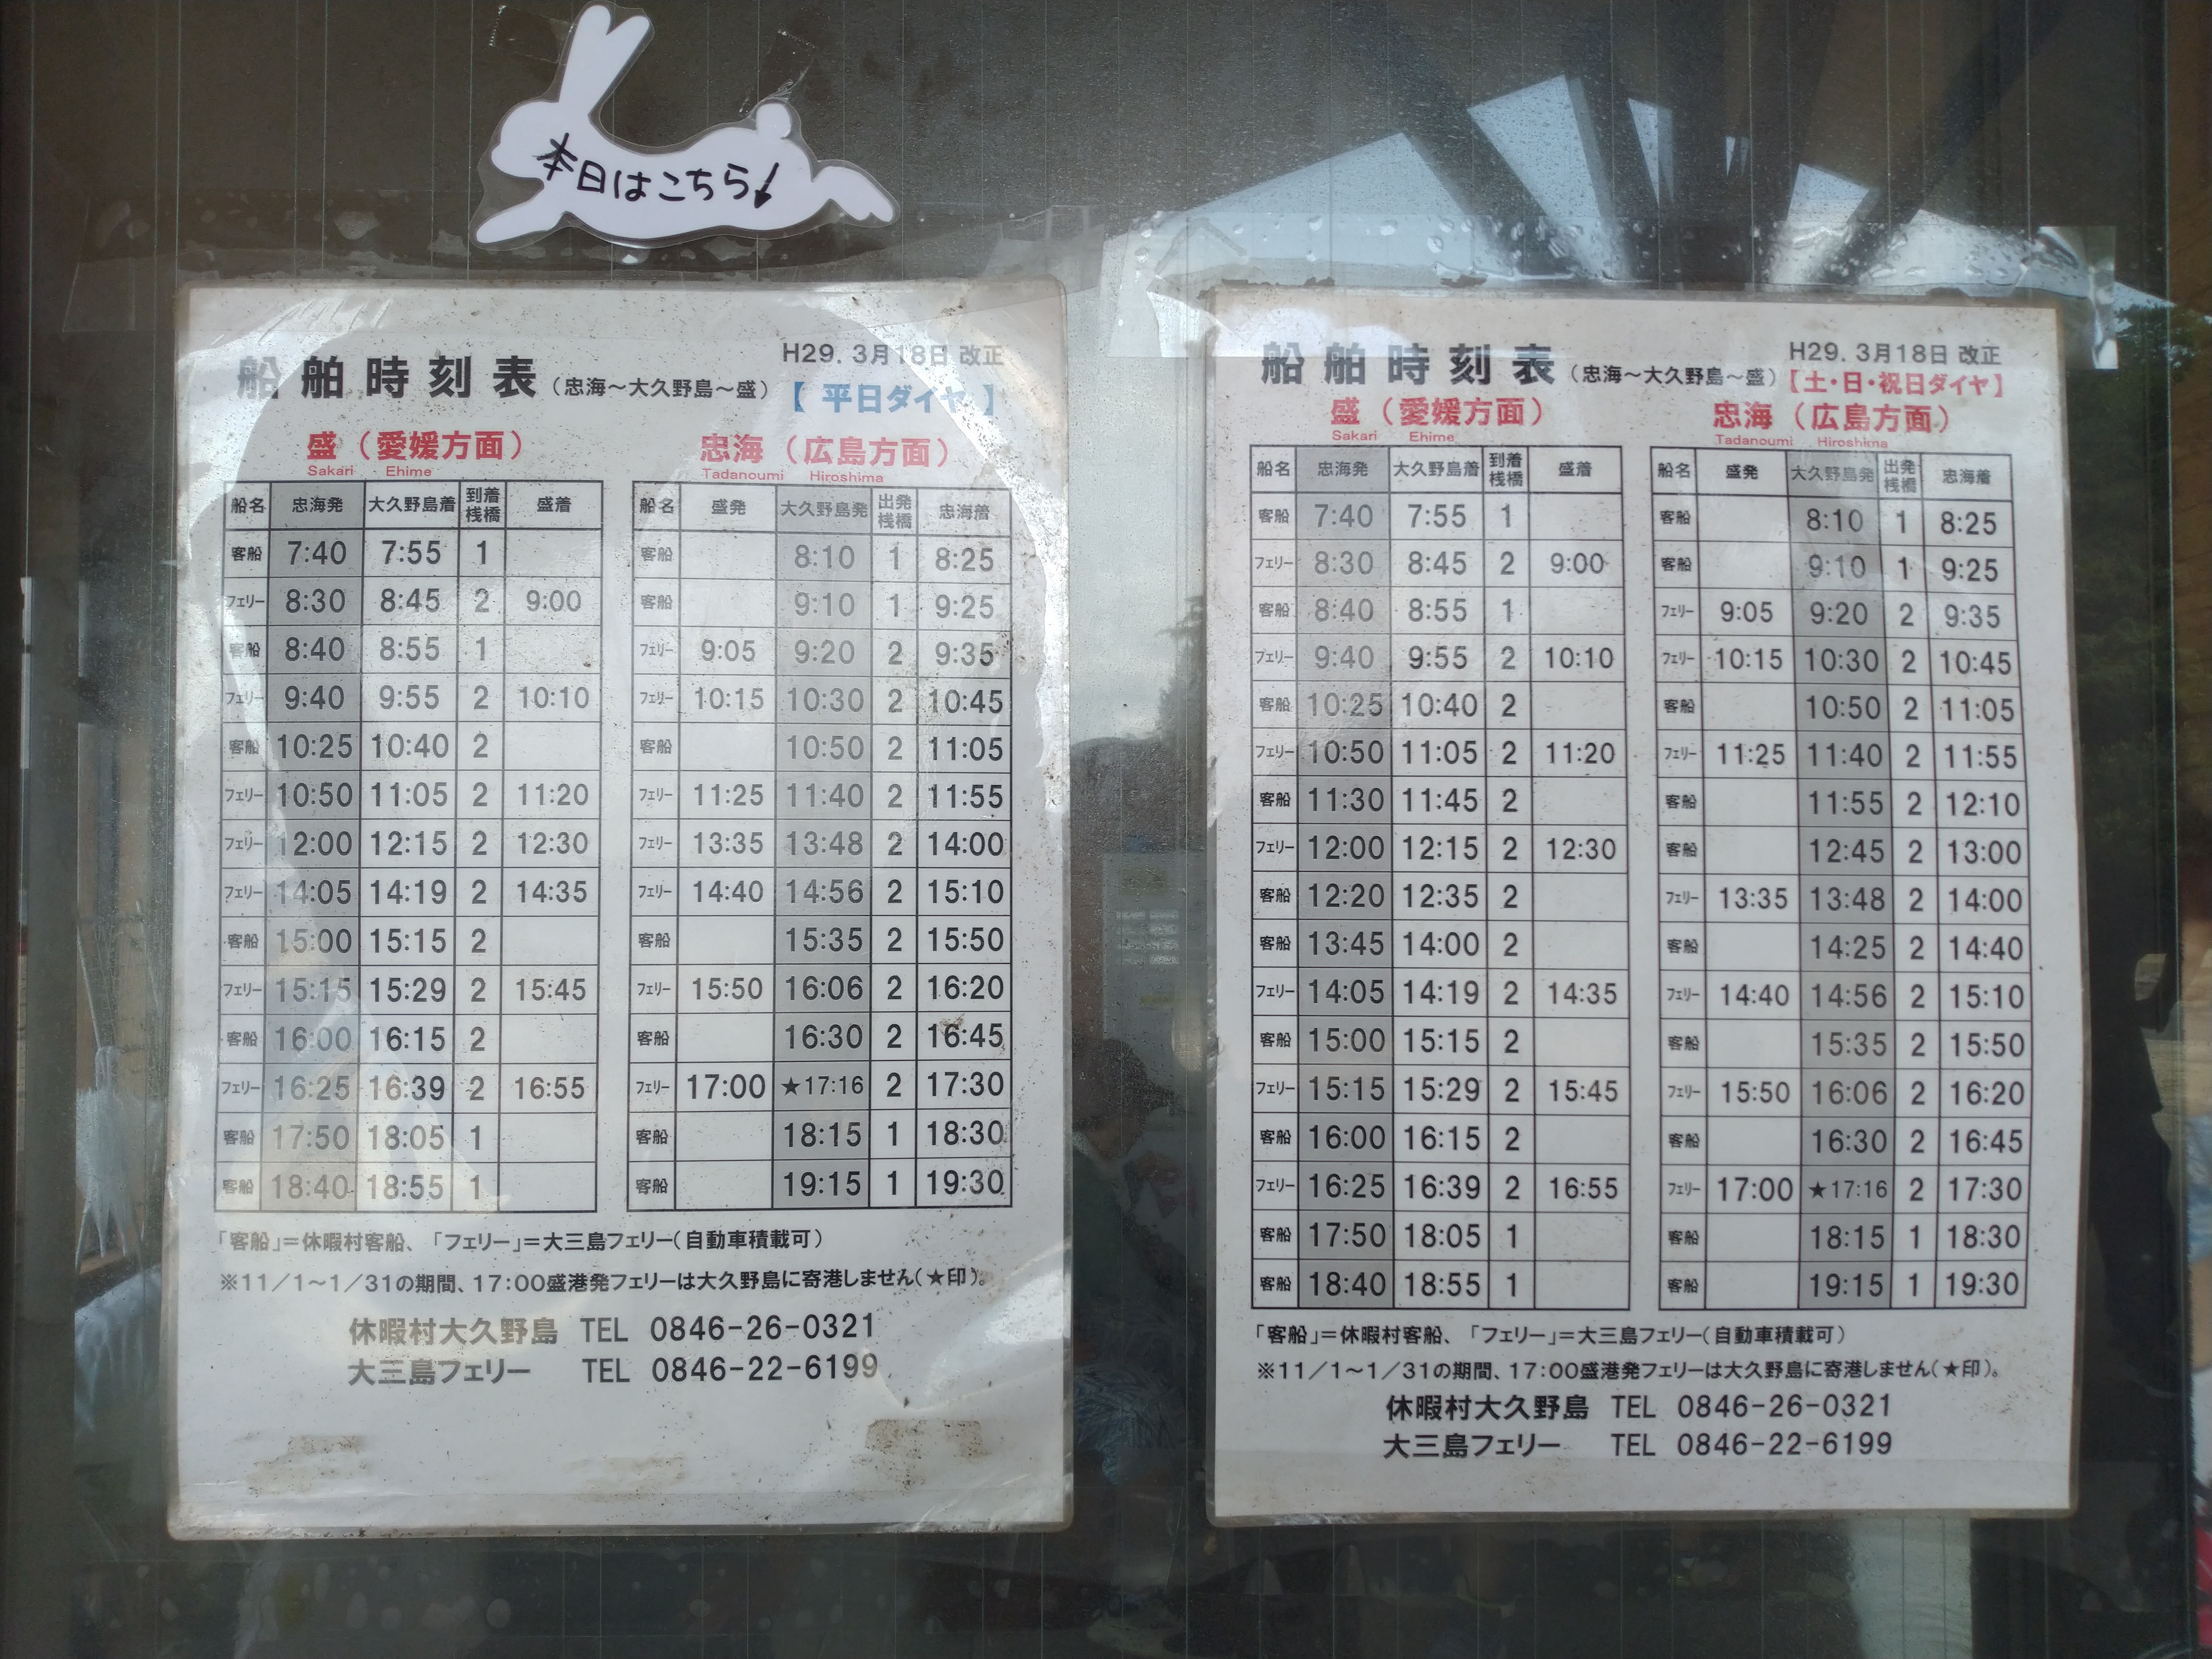 本日はこちら↓
船舶時刻表(忠海～大久野島～盛)
H29. 3月18日 改正
【 平日ダイヤ 】
盛(愛媛方面)
Sakari Ehime
船名 忠海発 大久野島着 到着桟橋 盛着
客船 7:40 7:55 1
フェリー 8:30 8:45 2 9:00
客船 8:40 8:55 1
フェリー 9:40 9:55 2 10:10
客船 10:25 10:40 2
フェリー 10:50 11:05 2 11:20
フェリー 12:00 12:15 2 12:30
フェリー 14:05 14:19 2 14:35
客船 15:00 15:15 2
フェリー 15:15 15:29 2 15:45
客船 16:00 16:15 2
フェリー 16:25 16:39 2 16:55
客船 17:50 18:05 1
客船 18:40 18:55 1
忠海(広島方面)
Tadanoumi Hiroshima
船名 盛発 大久野島発 出発桟橋 忠海着
客船 8:10 1 8:25
客船 9:10 1 9:25
フェリー 9:05 9:20 2 9:35
フェリー 10:15 10:30 2 10:45
客船 10:50 2 11:05
フェリー 11:25 11:40 2 11:55
フェリー 13:35 13:48 2 14:00
フェリー 14:40 14:56 2 15:10
客船 15:35 2 15:50
フェリー 15:50 16:06 2 16:20
客船 16:30 2 16:45
フェリー 17:00 ★17:16 2 17:30
客船 18:15 1 18:30
客船 19:15 1 19:30
「客船」=休暇村客船、「フェリー」=大三島フェリー(自動車積載可)
※11/1～1/31の期間、17:00盛港発フェリーは大久野島に寄港しません(★印)。
休暇村大久野島 TEL 0846-26-0321
大三島フェリー TEL 0846-22-6199
船舶時刻表(忠海～大久野島～盛)
H29. 3月18日 改正
【土・日・祝日ダイヤ】
盛(愛媛方面)
Sakari Ehime
船名 忠海発 大久野島着 到着桟橋 盛着
客船 7:40 7:55 1
フェリー 8:30 8:45 2 9:00
客船 8:40 8:55 1
フェリー 9:40 9:55 2 10:10
客船 10:25 10:40 2
フェリー 10:50 11:05 2 11:20
客船 11:30 11:45 2
フェリー 12:00 12:15 2 12:30
客船 12:20 12:35 2
客船 13:45 14:00 2
フェリー 14:05 14:19 2 14:35
客船 15:00 15:15 2
フェリー 15:15 15:29 2 15:45
客船 16:00 16:15 2
フェリー 16:25 16:39 2 16:55
客船 17:50 18:05 1
客船 18:40 18:55 1
忠海(広島方面)
Tadanoumi Hiroshima
船名 盛発 大久野島発 出発桟橋 忠海着
客船 8:10 1 8:25
客船 9:10 1 9:25
フェリー 9:05 9:20 2 9:35
フェリー 10:15 10:30 2 10:45
客船 10:50 2 11:05
フェリー 11:25 11:40 2 11:55
客船 11:55 2 12:10
客船 12:45 2 13:00
フェリー 13:35 13:48 2 14:00
客船 14:25 2 14:40
フェリー 14:40 14:56 2 15:10
客船 15:35 2 15:50
フェリー 15:50 16:06 2 16:20
客船 16:30 2 16:45
フェリー 17:00 ★17:16 2 17:30
客船 18:15 1 18:30
客船 19:15 1 19:30
「客船」=休暇村客船、「フェリー」=大三島フェリー(自動車積載可)
※11/1～1/31の期間、17:00盛港発フェリーは大久野島に寄港しません(★印)。
休暇村大久野島 TEL 0846-26-0321
大三島フェリー TEL 0846-22-6199